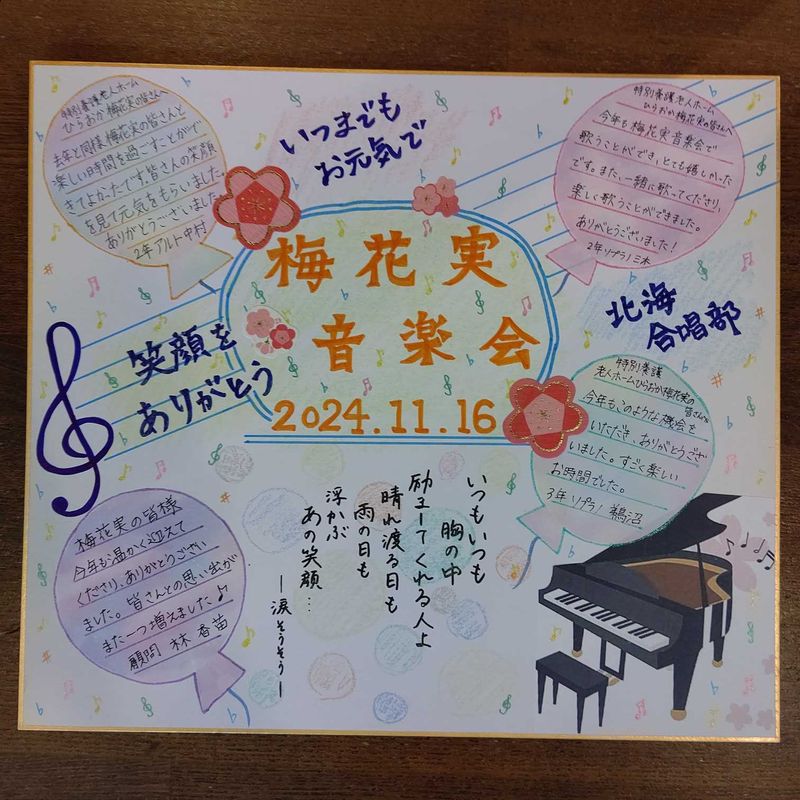 特別養護老人ホーム
ひらおか梅花実の皆さんへ
去年と同様梅花実の皆さんと
楽しい時間を過ごすことがで
きてよかったです。皆さんの笑顔
を見て元気をもらいました。
ありがとうございました
2年アルト中村
いつまでも
お元気で
特別養護老人ホーム
ひらおか梅花実の皆さんへ
今年も梅花実音楽会で
歌うことができ、とても嬉しかった
です。また、一緒に歌ってくださり、
楽しく歌うことができました。
ありがとうございました!
2年ソプラノ三木
梅花実
音楽会
2024.11.16
笑顔を
ありがとう
北海
合唱部
特別養護
老人ホームひらおか梅花実の
皆さんへ
今年もこのような機会を
いただき、ありがとうござ
いました。すごく楽しい
お時間でした。
3年ソプラノ鵜沼
梅花実の皆様
今年も温かく迎えて
くださり、ありがとうござい
ました。皆さんとの思い出が
また一つ増えました♪
顧問 林 香苗
いつもいつも
胸の中
励ましてくれる人よ
晴れ渡る日も
雨の日も
浮かぶ
あの笑顔…
ー涙そうそうー